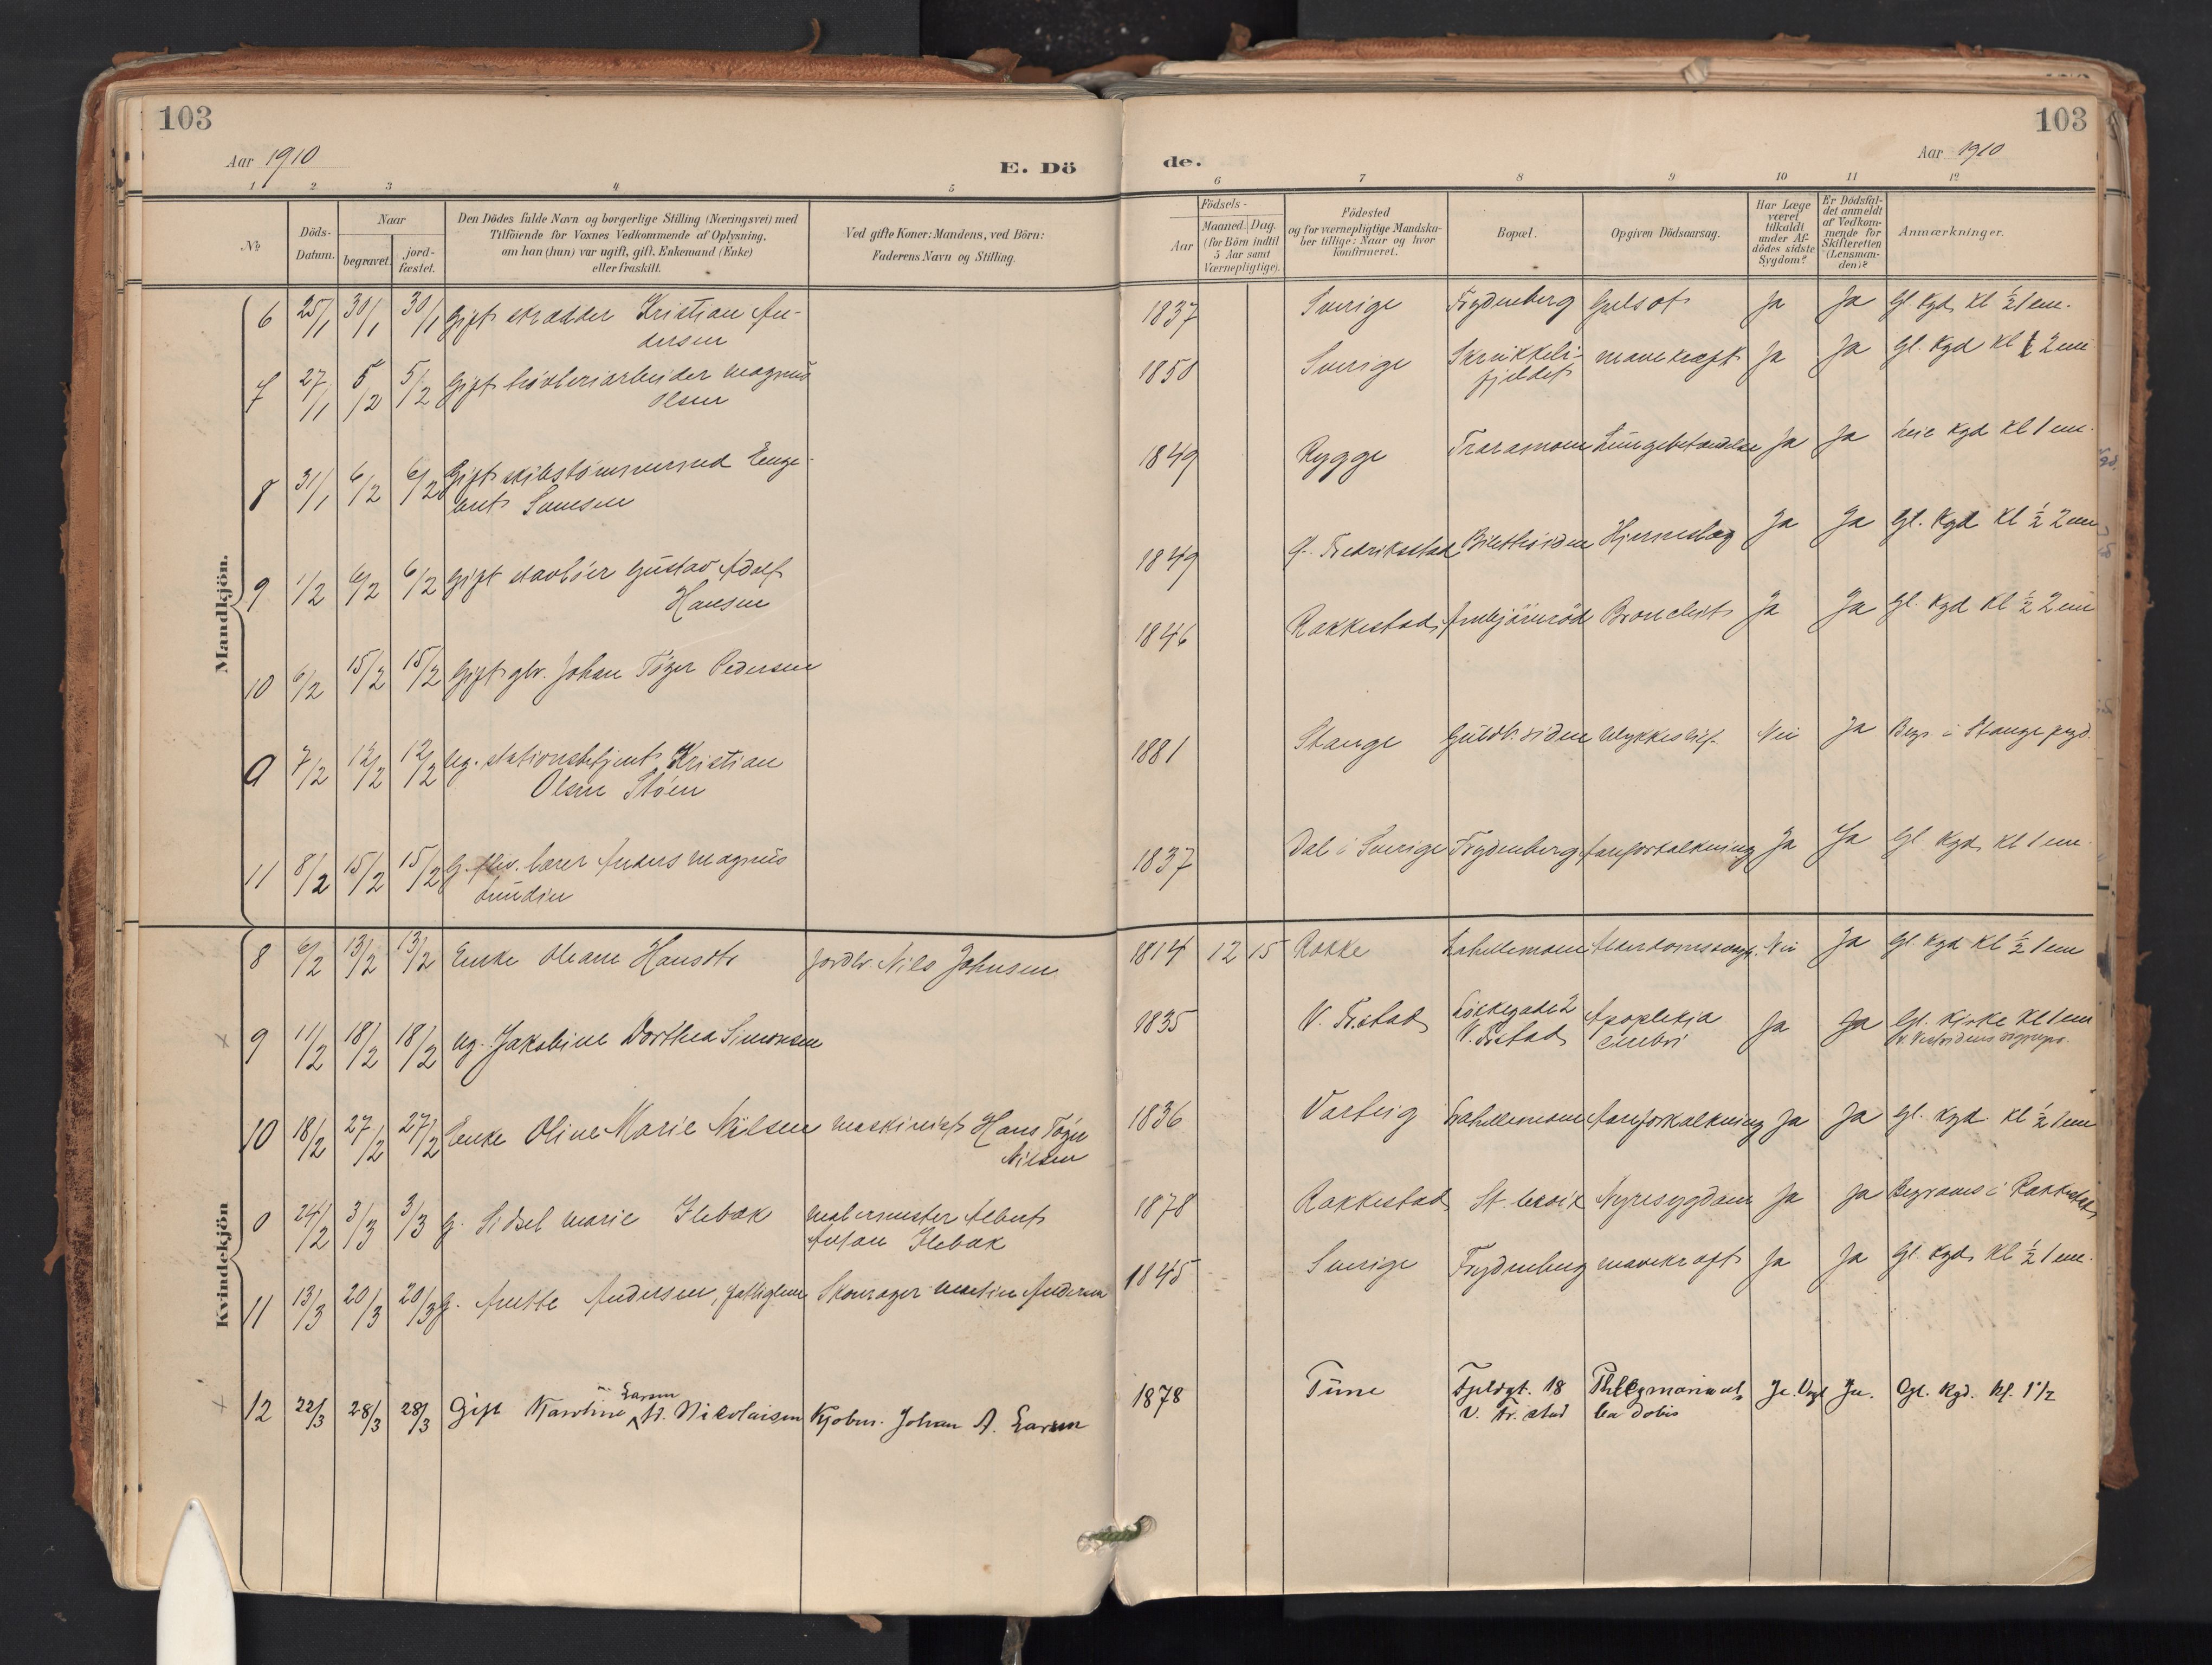 103
103
Aar 1910
E. Dö
de.
Aar 1910
1 2 3 4 5 6 7 8 9 10 11 12
№
Döds-Datum.
Naar
begravet.
jord-fæstet.
Den Dödes fulde Navn og borgerlige Stilling (Næringsvei) med
Tilföiende for Voxnes Vedkommende af Oplysning,
om han (hun) var ugift, gift, Enkemand (Enke)
eller fraskilt.
Ved gifte Koner: Mandens, ved Börn:
Faderens Navn og Stilling.
Födsels-
Aar
Maaned.
Dag.
(for Börn indtil
5 Aar samt
Værnepligtige).
Födested
og for værnepligtige Mandska-
ber tillige: Naar og hvor
konfirmeret.
Bopæl.
Opgiven Dödsaarsag.
Har Læge
været
tilkaldt
under Af-
dödes sidste
Sygdom?
Er Dödsfal-
det anmeldt
af Vedkom-
mende for
Skifteretten
(Lensman-
den)?
Anmærkninger.
Mandkjön.
6 25/1 30/1 30/1 Gift skrædder Kristian An-
dersen
1837 Sverige Frydenberg Gulsot Ja Ja Gl. kgd kl ½ 1 em.
7 27/1 5/2 5/2 Gift høvleriarbeider Magnus
Olsen
1850 Sverige Skrikkeli-
fjeldet
mavekræft Ja Ja Gl. kgd kl 2 em
8 31/1 6/2 6/2 Gift skibstømmermd Enge-
bret Svensen
1849 Rygge Traramoen Lungebetændelse Ja Ja Leie kgd kl 1 em.
9 1/2 6/2 6/2 Gift Gustav Adolf
Hansen
1849 Gl. Fredrikstad Hjerneslag Ja Ja Gl. kgd kl ½ 2 em
10 6/2 15/2 15/2 Gift gbr. Johan Tøger Pedersen
1846 Rakkestad Arnbjörnröd Bronchit Ja Ja Gl. kgd kl ½ 2 em
0 7/2 12/2 12/2 Ug. stationsbetjent Kristian
Olsen Støen
1881 Stange Guldb.siden Ulykkestilf. Nei Ja Begr. i Stange pgd.
11 8/2 15/2 15/2 G. bærer Anders Magnus
Lundin
1837 Dal i Sverige Frydenberg Aareforkalkning Ja Ja Gl. kgd kl 1 em.
Kvindekjön
8 6/2 13/2 13/2 Enke Oleane Hansdtr Jordbr. Nils Johnsen
1814 12 15 Rokke Lahellemoen Alderdomssvagh. Nei Ja Gl. kgd kl ½ 1 em
9 11/2 18/2 18/2 Ug. Jakobine Dorthea Simonsen
1835 V. Fr.stad 2
V. Fr.stad
Apoplexia
cerebri
Ja Ja Gl. Kirke kl 1 em
10 18/2 27/2 27/2 Enke Oline Marie Nilsen Maskinist Hans Tøger
Nilsen
1836 Varteig Lahellemoen Aareforkalkning Ja Ja Gl. kgd. kl ½ 1 em
0 24/2 3/3 3/3 G. Sidsel Marie Ilebak Malermester Albert
Anton Ilebak
1878 Rakkestad Nyresygdom Ja Ja Begraves i Rakkestad
11 13/3 20/3 20/3 G. Anette Andersen, fattiglem Skomager Martin Andersen
1845 Sverige Frydenberg mavekræft Ja Ja Gl. kgd kl ½ 1 em.
12 22/3 28/3 28/3 Gift Karoline Larsen f. Nikolaisen Kjøbm. Johan A. Larsen
1878 Tune Fjeldgt. 18
V. Fr.stad
Phlegmasia al-
ba dolens
Ja. Ja. Gl. kgd. kl. 1½